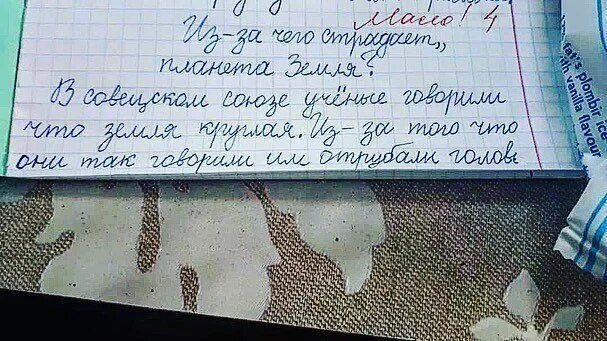 Мало! 4
Из-за чего страдает,,
планета Земля?
В совецском союзе учёные говорили
что земля круглая. Из-за того что
они так говорили им отрубали головы
at's plombir ice
with vanilla flavour